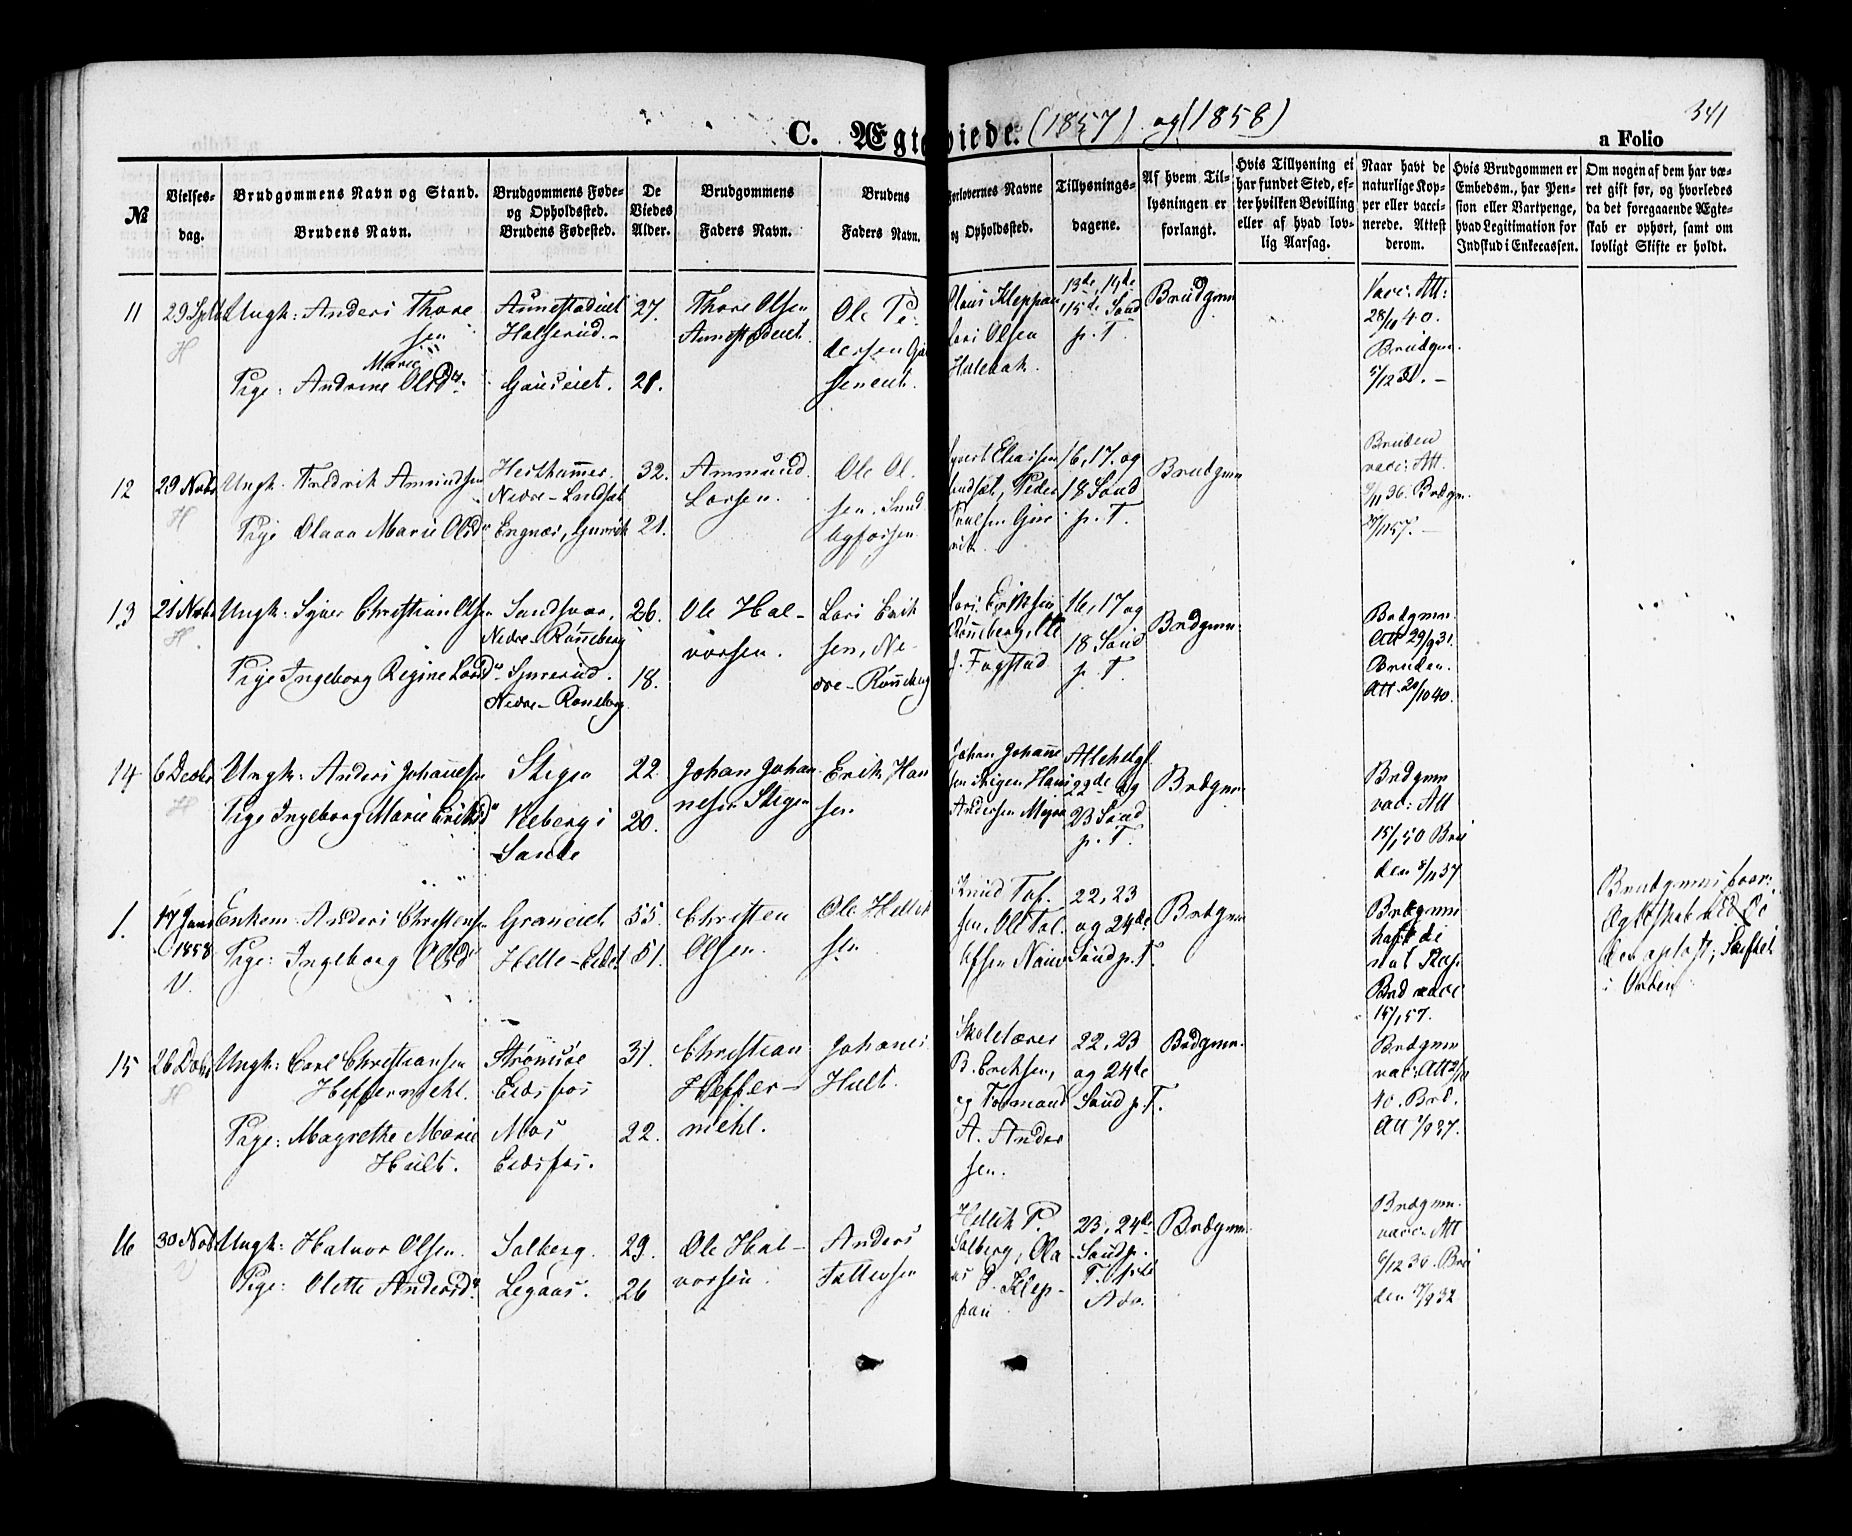 341
C. Ægteviede. (1857) og (1858)
a Folio
№
Vielses-
dag.
Brudgommens Navn og Stand.
Brudens Navn.
Brudgommens Føde-
og Opholdssted.
Brudens Fødested.
De
Viedes
Alder.
Brudgommens
Faders Navn.
Brudens
Faders Navn.
Forlovernes Navne
og Opholdssted.
Tillysnings-
dagene.
Af hvem Til-
lysningen er
forlangt.
Hvis Tillysning ei
har fundet Sted, ef-
ter hvilken Bevilling
eller af hvad lov-
lig Aarsag.
Naar havt de
naturlige Kop-
per eller vacci-
nerede. Attest
derom.
Hvis Brudgommen er
Embedsm., har Pen-
sion eller Vartpenge,
hvad Legitimation for
Indskud i Enkecassen.
Om nogen af dem har væ-
ret gift før, og hvorledes
da det foregaaende Ægte-
skab er ophørt, samt om
lovligt Skifte er holdt.
11
29 Septbr
H
Ungk: Anders Thore
sen
Marie
Pige: Andrine Olsdr.
Halserud.
27.
21.
Thore Olsen
Ole Pe-
dersen
Olaus Kleppan
Lars Olsen
Hulebak.
13de, 14de
15de Sønd
p. T.
Brudgmn
Vacc: Att:
28/11 40.
Brudgm.
12
29 Novbr
H
Ungk. Fredrik Amundsen
Pige Olava Marie Olsdr
Nedre-
Engnæs, Gjervik
32.
21.
Ammund
Larsen.
Ole Ol
sen.
16, 17. og
18 Sønd
p. T.
Brudgmn
Bruden
vacc: Att.
13
21 Novbr
H
Ungk. Syver Christian Olsen
Pige Ingeborg Regine Larsdr
Sandsvær,
Nedre-Rønneberg
Nedre-Rønneberg
26.
18.
Ole Hal-
vorsen.
Lars Erik
sen, Ne-
dre-Rønneberg
Lars Eriksen
Fagstad
16, 17 og
18 Sønd
p. T.
Brdgmn.
Brdgmn.
Att 29/9 31.
Bruden.
Att. 20/10 40.
14
6 Decbr
H
Ungk: Anders Johannesen
Pige Ingeborg Marie Eriksdr
Stigen
Veberg i
Sande
22
20.
Johan Johan
nesen Stigen
Erik Han
sen
Johan Johanne
sen Stigen Hans
Andersen
Allehelgf
22de og
23 Sønd
p. T.
Brdgmn.
Brdgmn
vac: Att
15/1 50 Bru
den 5/11 37
1.
17 Janr
1858
V.
Enkem: Anders Christensen
Pige: Ingeborg Olsdr
Graneiet
Helle-Eidet
55.
51.
Christen
Olsen.
Ole Hellik
sen
22, 23
og 24de
Sønd p. T.
Brdgmn
Brdgmn
haft de
nat Kop.
Brd vacc
15/1 57.
Brudgmns forr:
Ægteskab ved Dø
den opløst; Skiftet
i Orden
15
26 Decbr
H
Ungk: Carl Christiansen
Heffermehl.
Pige: Magrethe Marie
Hult.
Strømsøe
Eidsfos
Mos
Eidsfos.
31.
22.
Christian
Heffer-
mehl.
Johanes
Hult.
Skolelærer
B. Eriksen,
og Formand
A. Ander
sen.
22, 23
og 24de
Sønd p. T.
Brdgmn.
Brdgmn
vac: Att 2/10
40. Brd.
Att 1/9 37.
16
30 Novb
V
Ungk: Halvor Olsen.
Pige: Olette Andersdr.
Solberg.
Legaas.
29.
26
Ole Hal-
vorsen
Anders
Tollevsen
Hellik P.
Solberg, Ola
us P. Klep-
pan
23, 24de
Sønd p.
T.
Brdgmn
Brdgmn.
vacc: Att
6/12 30. Bru
den 17/9 32